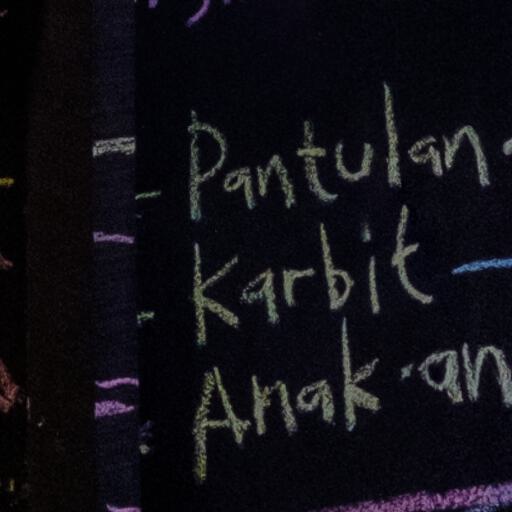 Pantulan
Karbit —
Anak-an